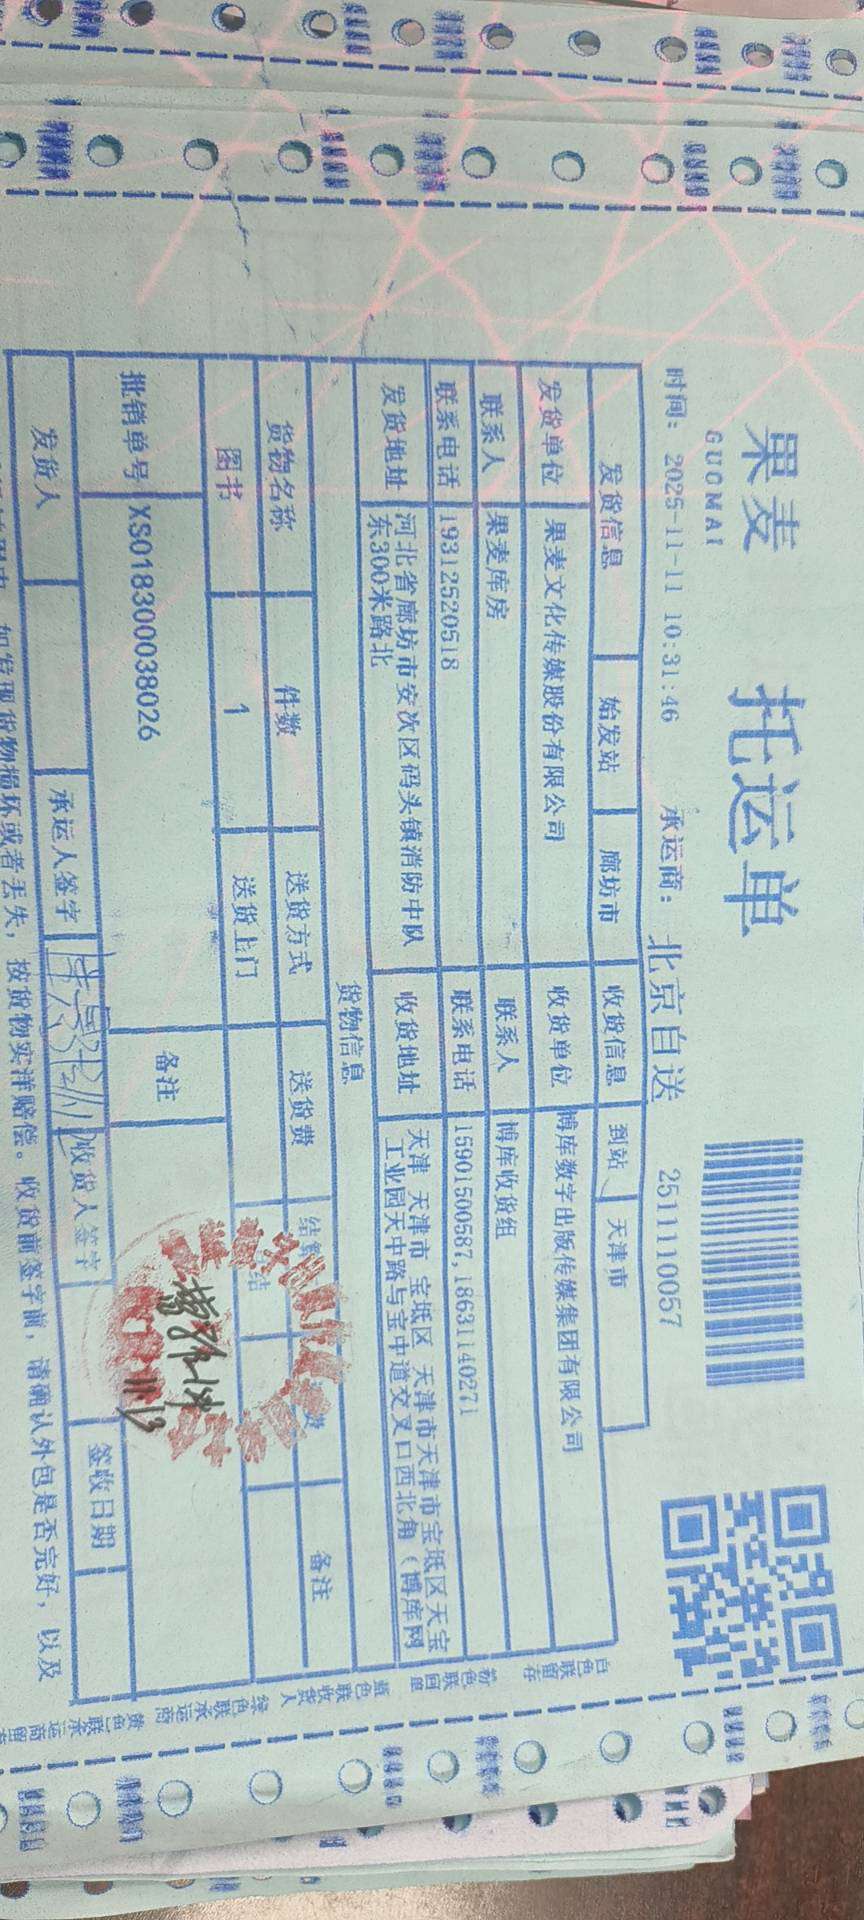 果麦 托运单
GUOMAI
2511110057
时间: 2025-11-11 10:31:46 承运商: 北京自送
发货信息 始发站 廊坊市 收货信息 到站 天津市
发货单位 果麦文化传媒股份有限公司 收货单位 博库数字出版传媒集团有限公司
联系人 果麦库房 联系人 博库收货组
联系电话 19312520518 联系电话 15901500587,18631140271
发货地址 河北省廊坊市安次区码头镇消防中队
东300米路北
收货地址 天津 天津市 宝坻区 天津市天津市宝坻区天宝
工业园天中路与宝中道交叉口西北角(博库网
货物信息
货物名称 件数 送货方式 送货费 备注
图书 1 送货上门
批销单号 XS018300038026 备注
发货人 承运人签字 收货人签字 签收日期
如发现货物损坏或者丢失, 按货物实洋赔偿。收货前签字前, 请确认外包是否完好, 以及
白色联留存
粉色联回单
蓝色联收货人
绿色联承运商
黄色联承运商留存